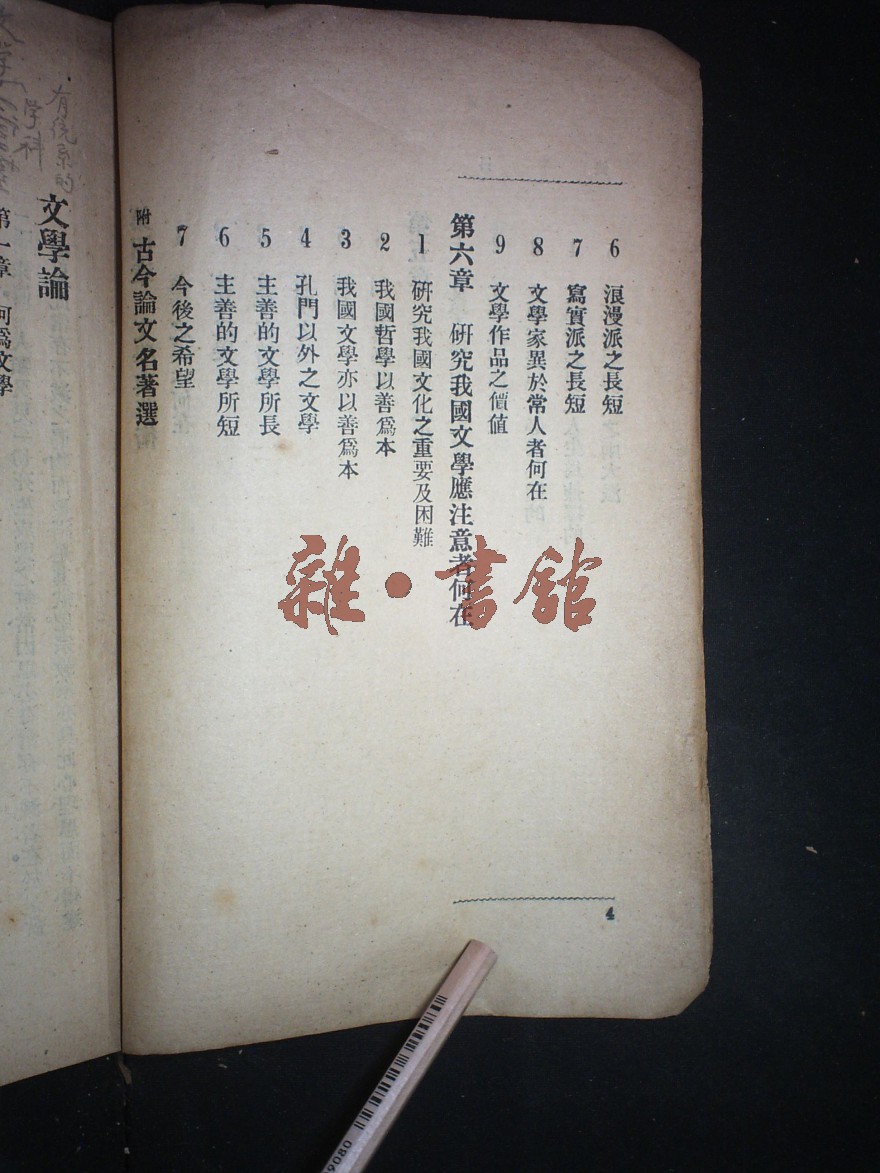 6 浪漫派之長短
7 寫實派之長短
8 文學家異於常人者何在
9 文學作品之價値
第六章 研究我國文學應注意者何在
1 研究我國文化之重要及困難
2 我國哲學以善爲本
3 我國文學亦以善爲本
4 孔門以外之文學
5 主善的文學所長
6 主善的文學所短
7 今後之希望
附 古今論文名著選
4
雜·書館
有系的
学科
文學論
第一章 何爲文學
9080